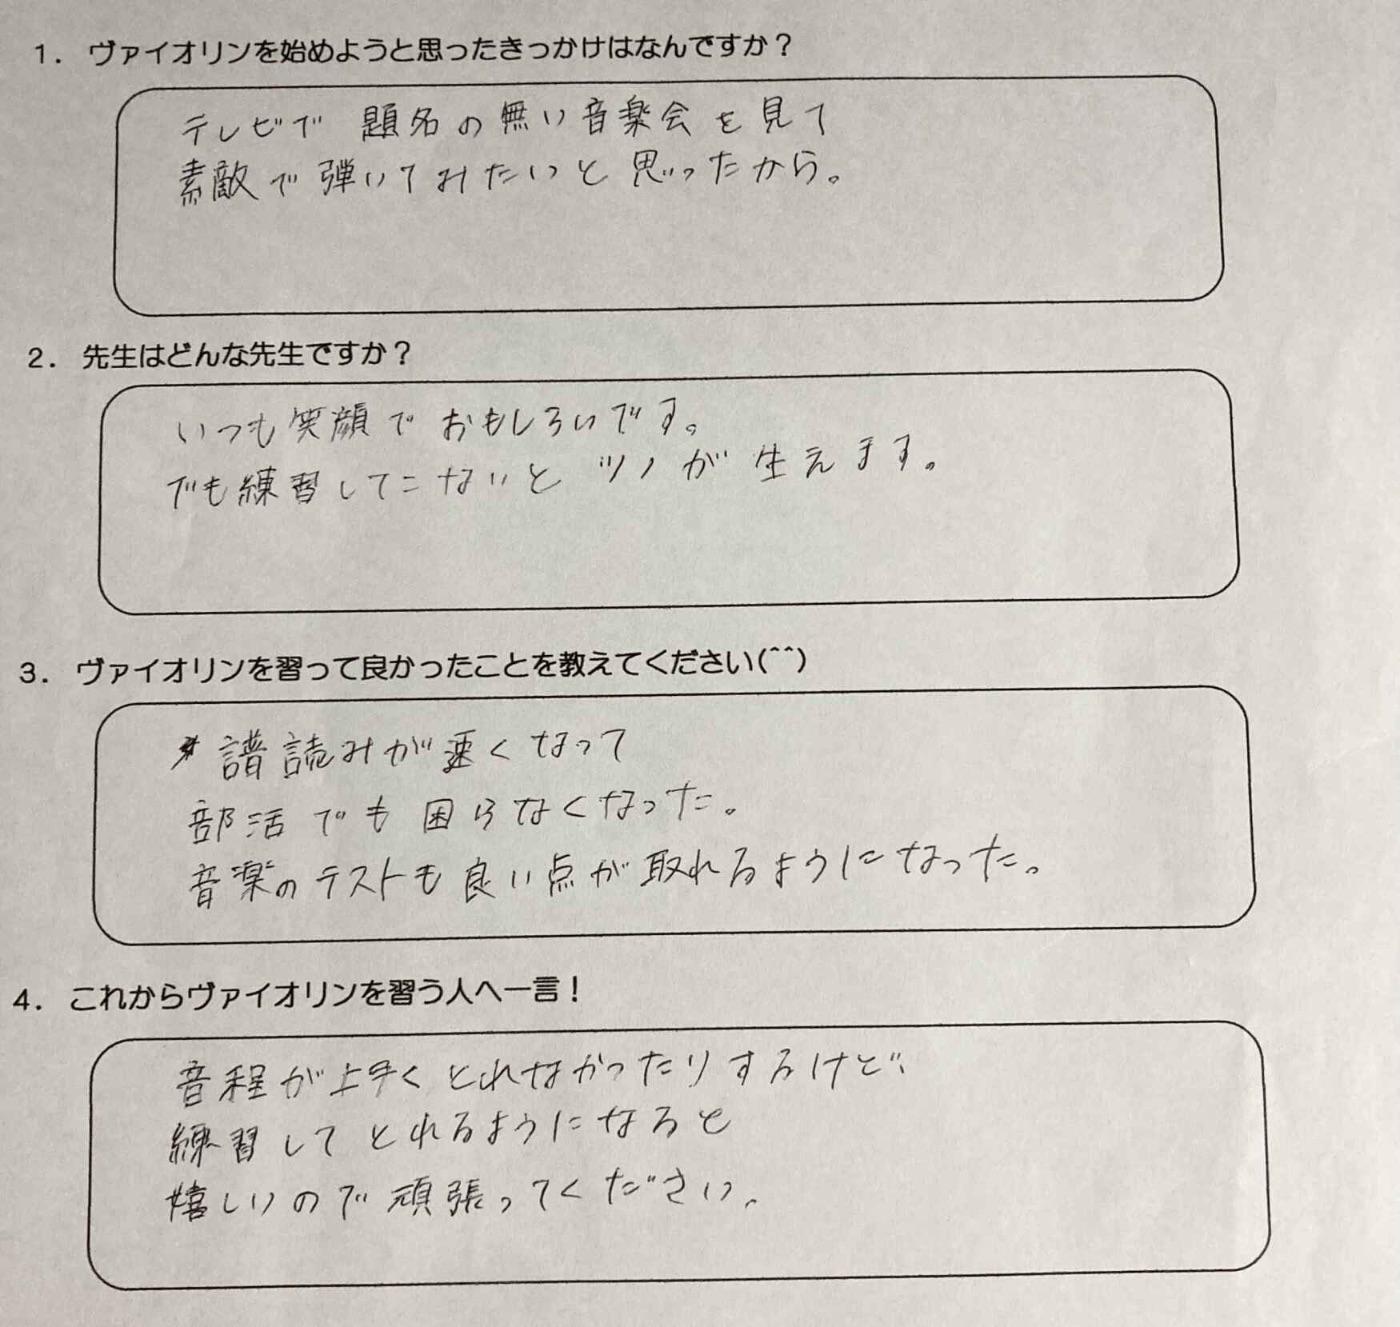 1. ヴァイオリンを始めようと思ったきっかけはなんですか？
テレビで 題名の無い音楽会を見て
素敵で弾いてみたいと思ったから。
2. 先生はどんな先生ですか？
いつも笑顔でおもしろいです。
でも練習してこないとツノが生えます。
3. ヴァイオリンを習って良かったことを教えてください(^^)
譜読みが速くなって
部活でも困らなくなった。
音楽のテストも良い点が取れるようになった。
4. これからヴァイオリンを習う人へ一言！
音程が上手くとれなかったりするけど、
練習してとれるようになると
嬉しいので頑張ってください。